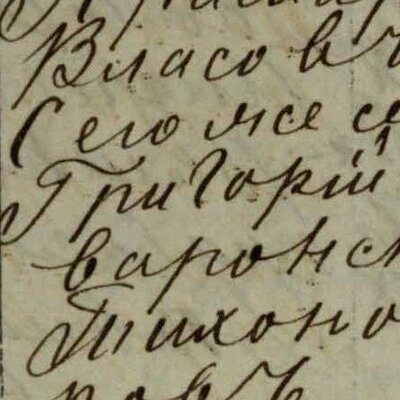 Власовъ
Сего же се
Григорій
варонс
Тихоно
ровъ